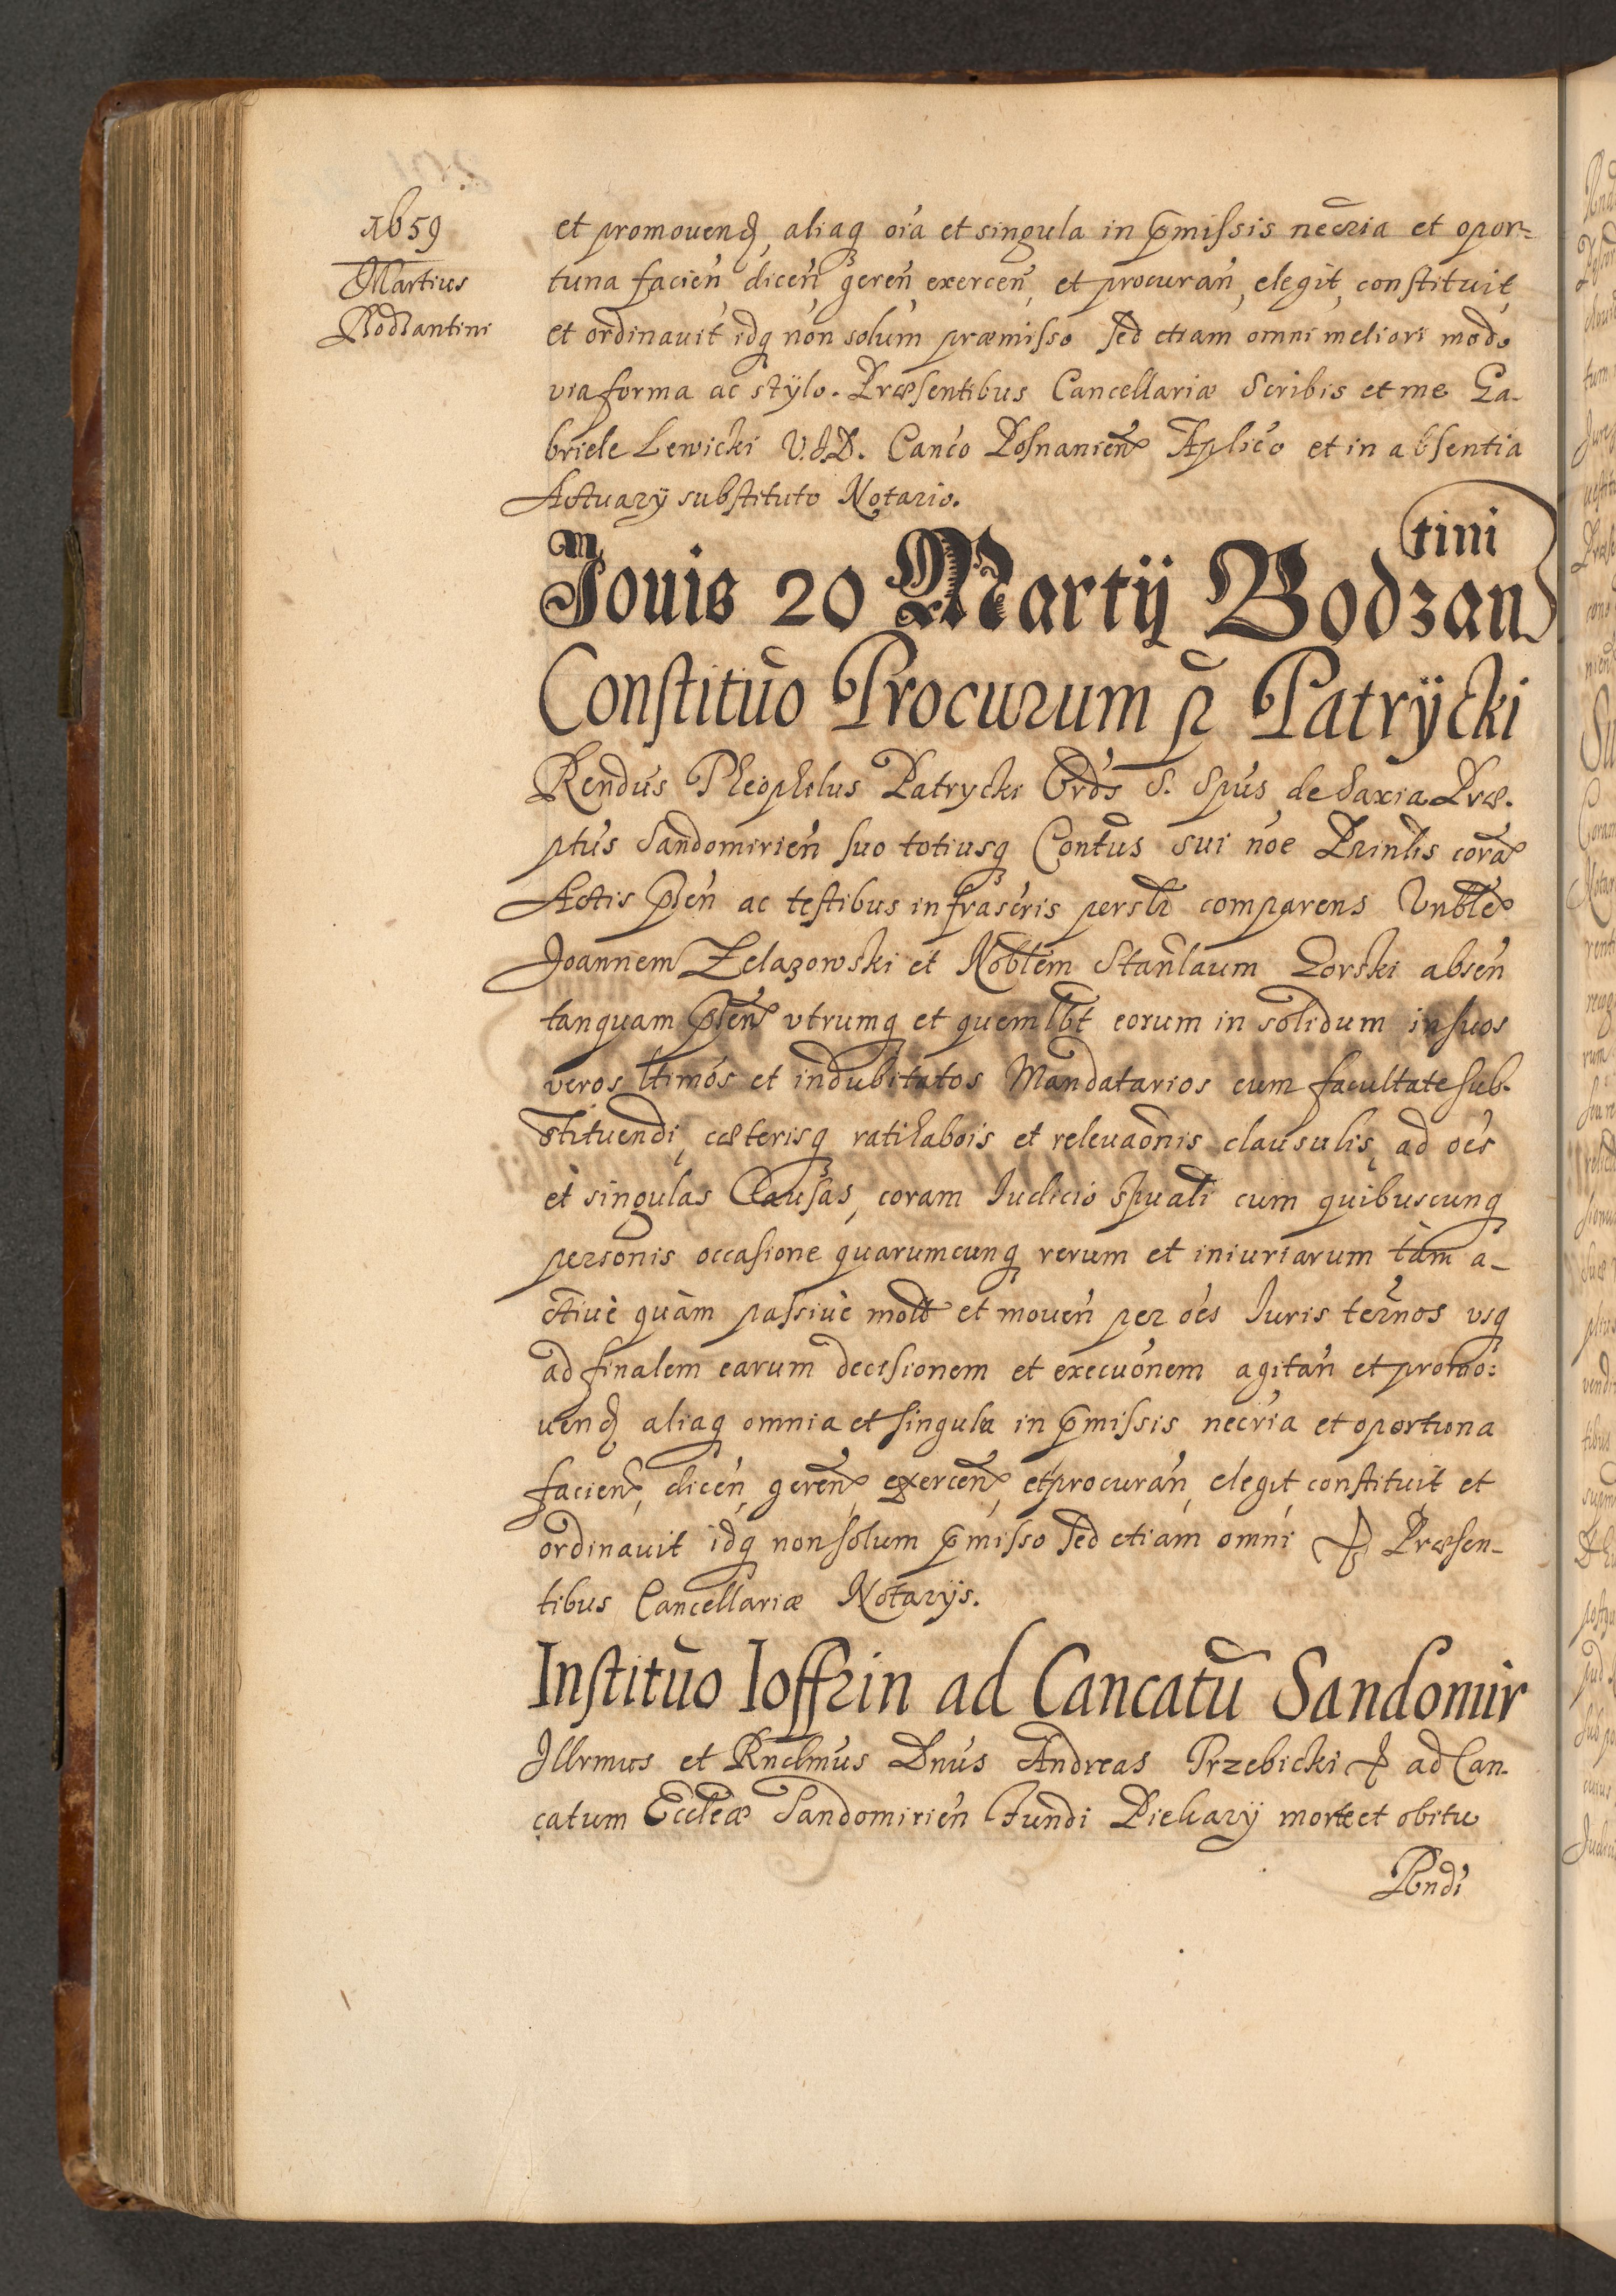 1659
Martius
Bodzantini
et promouend, aliaq oia et singula in pmissis necria et opor=
tuna facien dicen geren exercen, et procuran, elegit, constituit
et ordinauit idq non solum præmisso sed etiam omni meliori modo
via forma ac stÿlo. Præsentibus Cancellariæ Scribis et me Ga-
briele Lewicki V.J.D. Canco Posnanien Aplico et in absentia
Actuarÿ substituto Notario.
Jouis 20 Martÿ Bodzan
tini
Constituo Procurum p Patrÿcki
Rendus Theophilus Patrycki Ords S. Spus de Saxia Præ-
ptus Sandomirien suo totiusq Contus sui noe Prinlis cora
Actis pñ ac testibus infrascris perslr comparens Vnblem
Joannem Zelazowski et Noblem Stanlaum Gorski absen
tanquam pñ vtrumq et quemlbt eorum in solidum in suos
veros ltimos et indubitatos Mandatarios cum facultate sub-
stituendi, cæterisq ratihabois et releuaonis clausulis, ad oes
et singulas Causas, coram Iudicio spuali cum quibuscunq
personis occasione quarumcunq rerum et iniuriarum tam a-
ctiuè quàm passiuè mott et mouen per oes Iuris termos vsq
ad finalem earum decisionem et execuonem agitan et promo:
uend aliaq omnia et singula in pmissis necria et oportuna
facien, dicen, geren, exercen, et procuran, elegit constituit et
ordinauit idq non solum pmisso sed etiam omni Præsen-
tibus Cancellariæ Notarÿs.
Instituo Ioffrin ad Cancatu Sandomir
Illrmus et Rndmus Dnus Andreas Trzebicki ad Can-
catum Eccleæ Sandomirien fundi Piekarÿ morte et obitu
Rndi